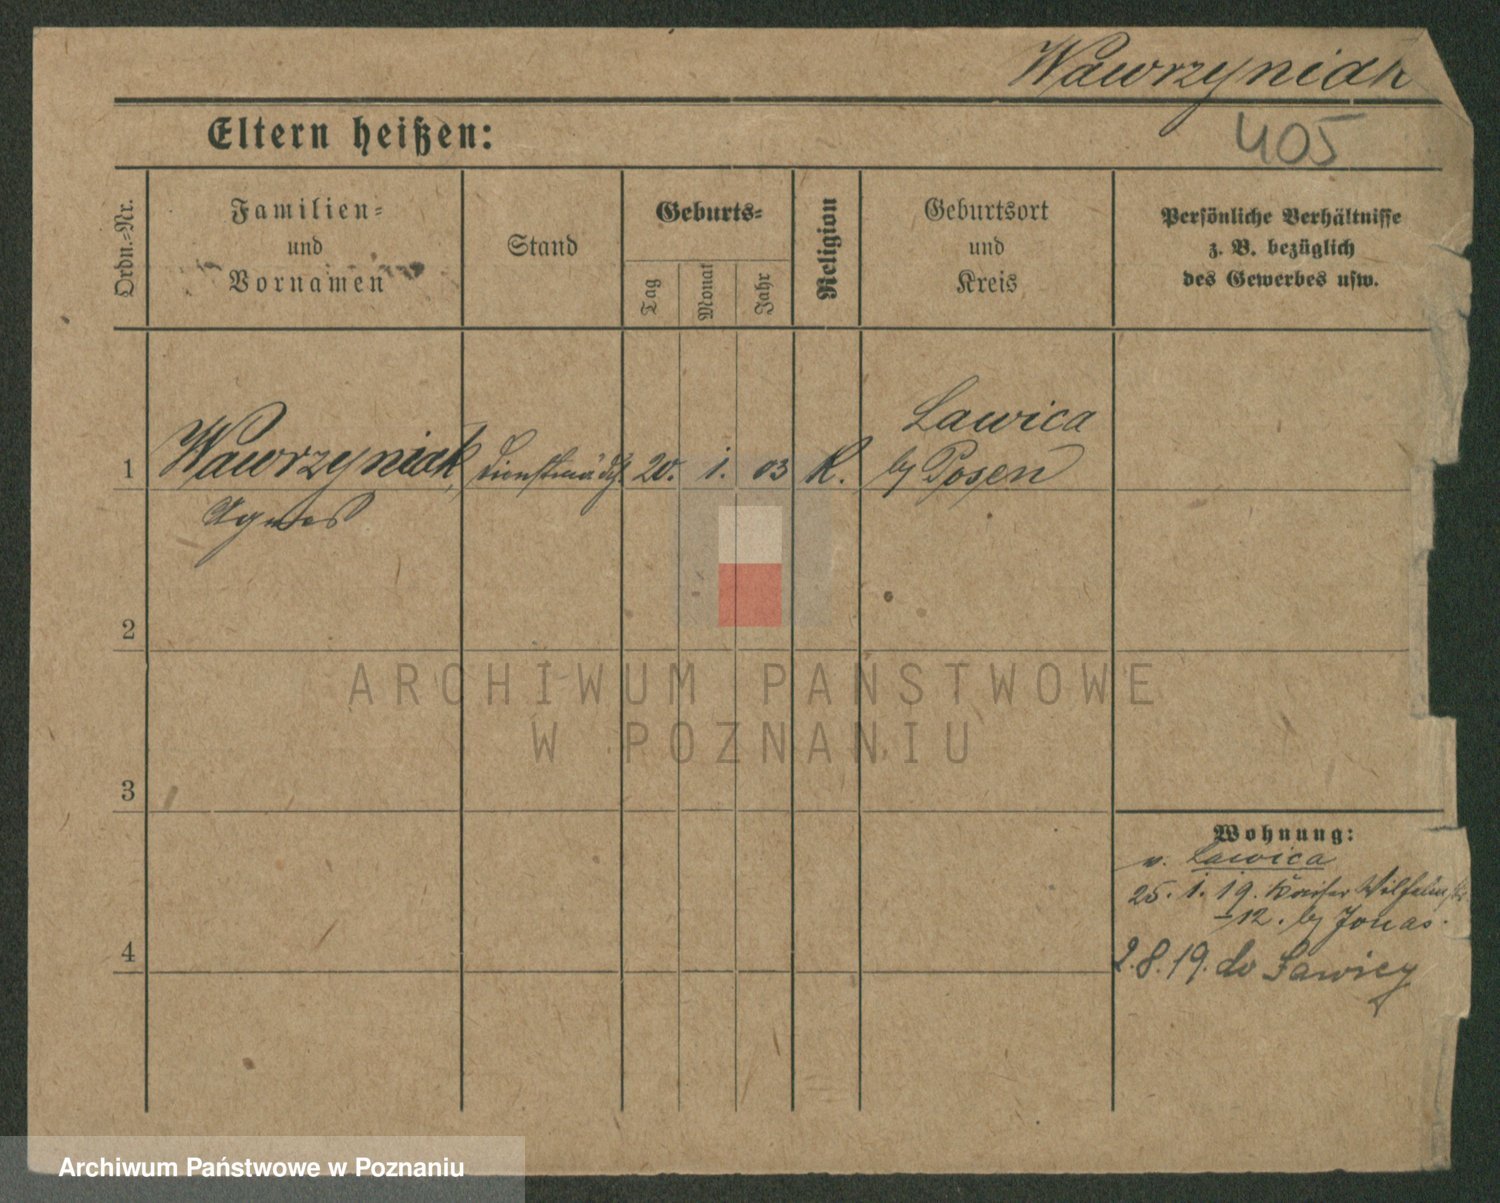 Wawrzyniak
Eltern heißen:
405
Ordn.-Nr.
Familien-
und
Vornamen
Stand
Geburts-
Tag
Monat
Jahr
Religion
Geburtsort
und
Kreis
Persönliche Verhältnisse
z. B. bezüglich
des Gewerbes usw.
Lawica
1 Wawrzyniak, Dienstmädch. 20. 1. 03 K. by Posen
Agnes
2
ARCHIWUM PAŃSTWOWE
W POZNANIU
3
Wohnung:
v. Lawica
25. 1. 19. Kaiser Wilhelmstr
12. by Jonas.
4
2.8.19. do Lawicy
Archiwum Państwowe w Poznaniu